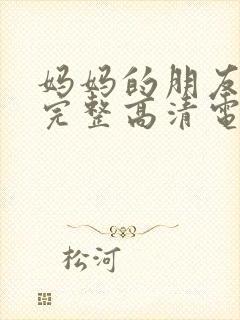 妈妈的朋友
完整高清电
松河